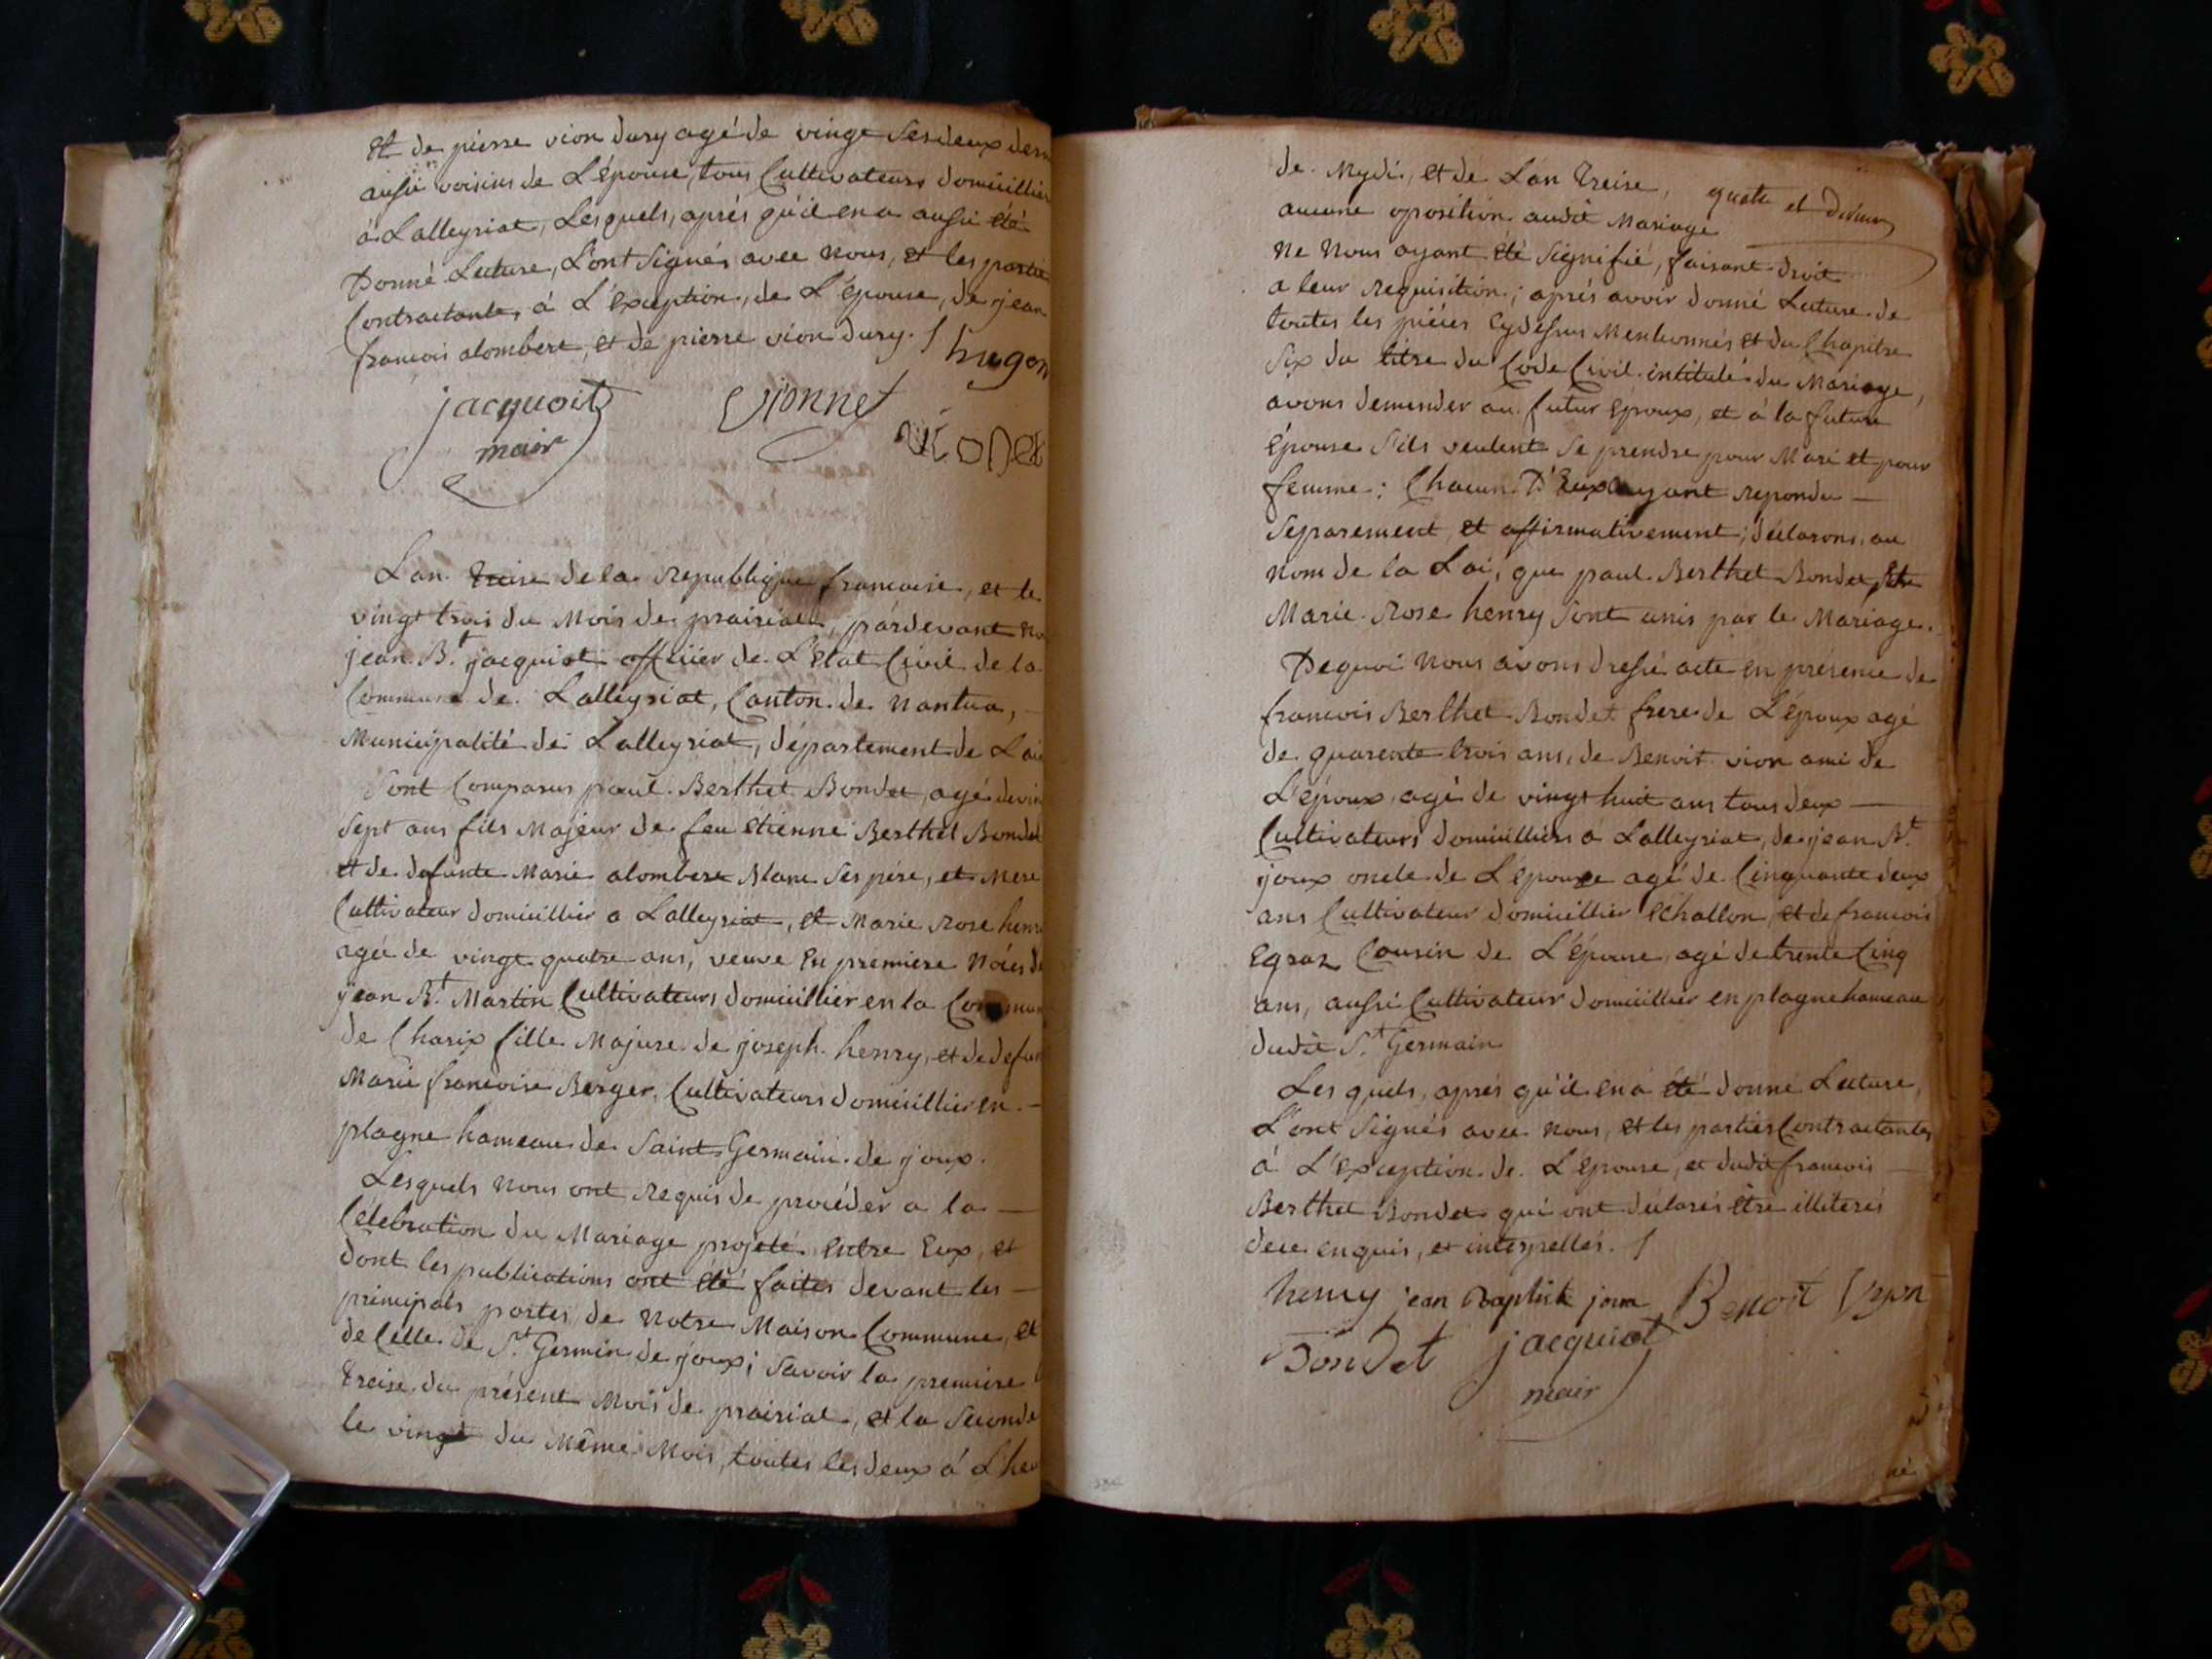 et de pierre vion dury agé de vingt ses deux
aussi voisins de L'épouse, tous Cultivateurs domicillier
à Lalleyriat, Lesquels, aprés qu'il en a aussi été
Donné Lecture, L'ont Signés avec nous, et les partie
Contractante, à L'exception, de L'épouse, de jean
francois alombert, et de pierre vion dury. /
hugon
jacquoit
mair
Vionnet
vionet
Lan treise de la republique francaise, et le
vingt trois du Mois de prairial, pardevant no
jean B.t jacquiot officier de L'etat Civil de la
Commune de Lalleyriat, Canton de Nantua, —
Municipalité de Lalleyriat, département de Lai
Sont Comparus paul Berthet Bondet, agé de vin
Sept ans fils Majeur de feu etienne Berthet Bondet
et de defunte Marie alombert Blanc Ses pére, et Mere
Cultivateur domicillier a Lalleyriat, et Marie Rose henr
agée de vingt quatre ans, veuve En premiere Noces de
jean B.t Martin Cultivateurs domicillier en la Commun
de Charix fille Majure de joseph henry, et de defun
Marie francoise Berger, Cultivateurs domicillier en —
plagne hameau de Saint Germain de joux.
Lesquels nous ont Requis de procéder a la —
Célébration du Mariage projeté entre Eux, et
dont les publications ont été faites devant les —
principals portes de Notre Maison Commune, et
de Celle de S.t Germin de joux; Savoir la premiere
treise du présent Mois de prairial, et la Seconde
le vingt du Même Mois, toutes les deux à L'heu
de Mydi, et de Lan treise,
aucune oposition audit Mariage
ne nous ayant été Signifié, faisant droit
a leur requisition; aprés avoir donné Lecture de
toutes les piéces Cydessus Mentionnés et du Chapitre
Six du titre du Code Civil intitulé du Mariage,
avons demender au futur Epoux, et à la future
épouse S'ils veulent Se prendre pour Mari et pour
femme: Chacun D'Eux ayant repondu —
Séparement et affirmativement; déclarons, au
nom de la Loi, que paul Berthet Bondet, et
Marie Rose henry Sont unis par le Mariage.
Dequoi nous avons dressé acte en présence de
francois Berthet Bondet frere de L'époux agé
de quarente trois ans, de Benoit vion ami de
L'époux, agé de vingt huit ans tous deux —
Cultivateurs domicilliers à Lalleyriat, de jean B.t
joux oncle de L'epouse agé de Cinquante deux
ans Cultivateur domicillier echallon, et de francois
Egraz Cousin de L'Epouse, agé de trente Cinq
ans, aussi Cultivateur domicillier en plagne hameau
dudit S.t Germain
Les quels, aprés qu'il en a été donné Lecture,
L'ont Signés avec nous, et les parties Contractantes
à L'exception de L'epouse, et dudit francois —
Berthet Bondet qui ont déclarés être illiterés
dece enquis, et interpellés. /
henry jean Baptiste joux Benoit Vyon
Bondet jacquiot
mair